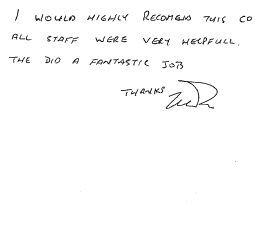 I WOULD HIGHLY RECOMEND THIS CO
ALL STAFF WERE VERY HELPFULL.
THE DID A FANTASTIC JOB
THANKS